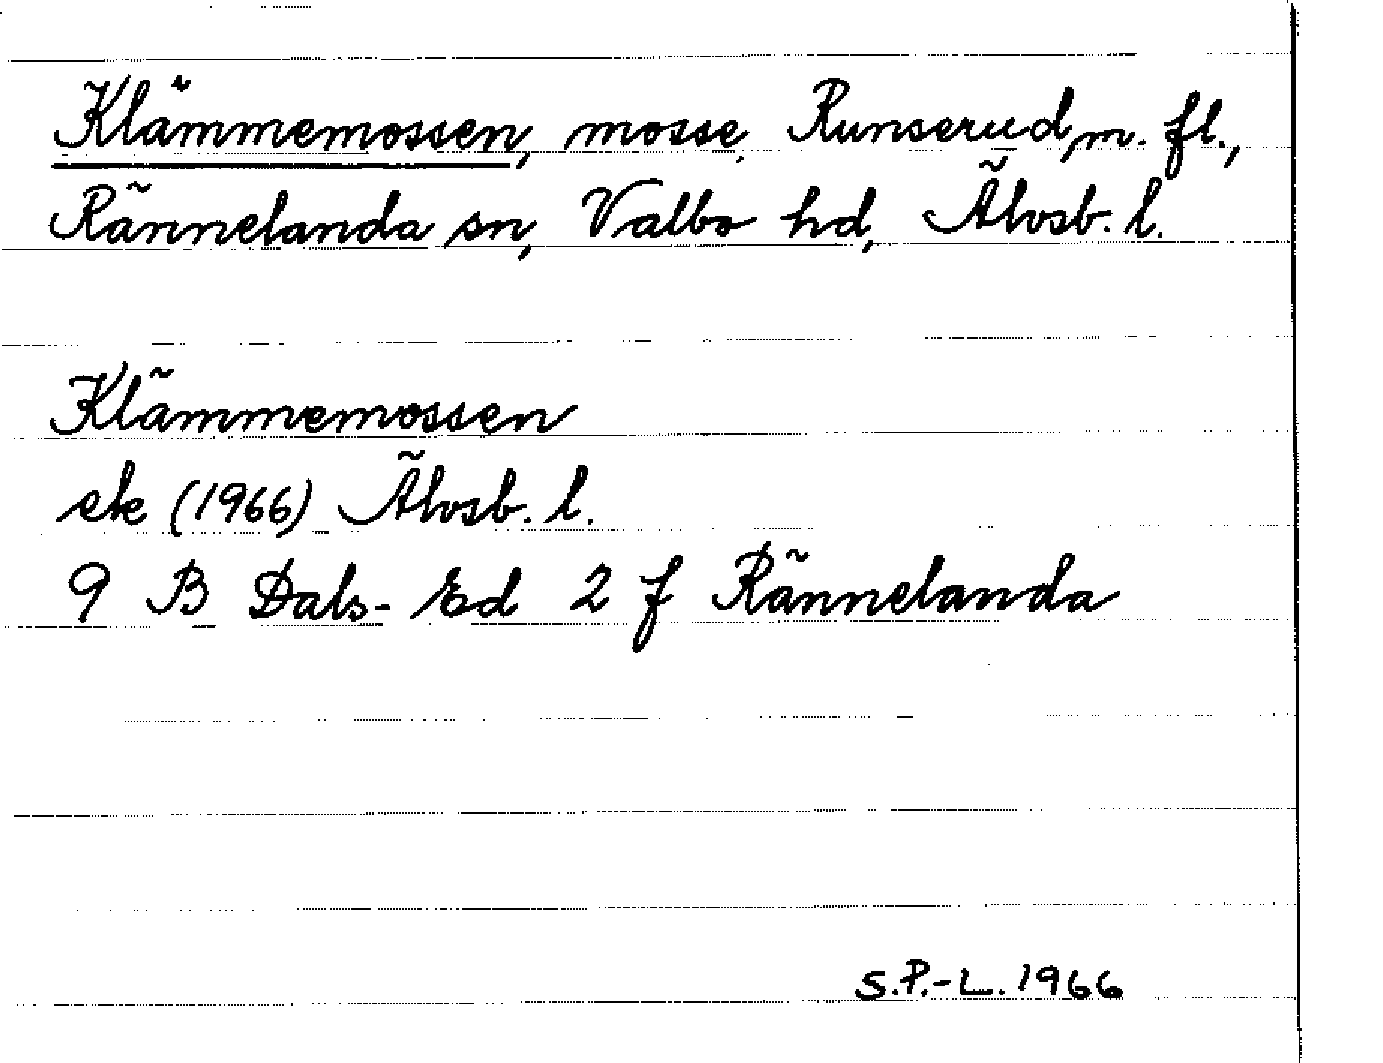 Klämmemossen, mosse, Runserud, m. fl.,
Rännelanda sn, Valbo hd, Älvsb. l.
Klämmemossen
ek (1966) Älvsb. l.
9 B Dals-Ed 2 f Rännelanda
S.P.-L. 1966